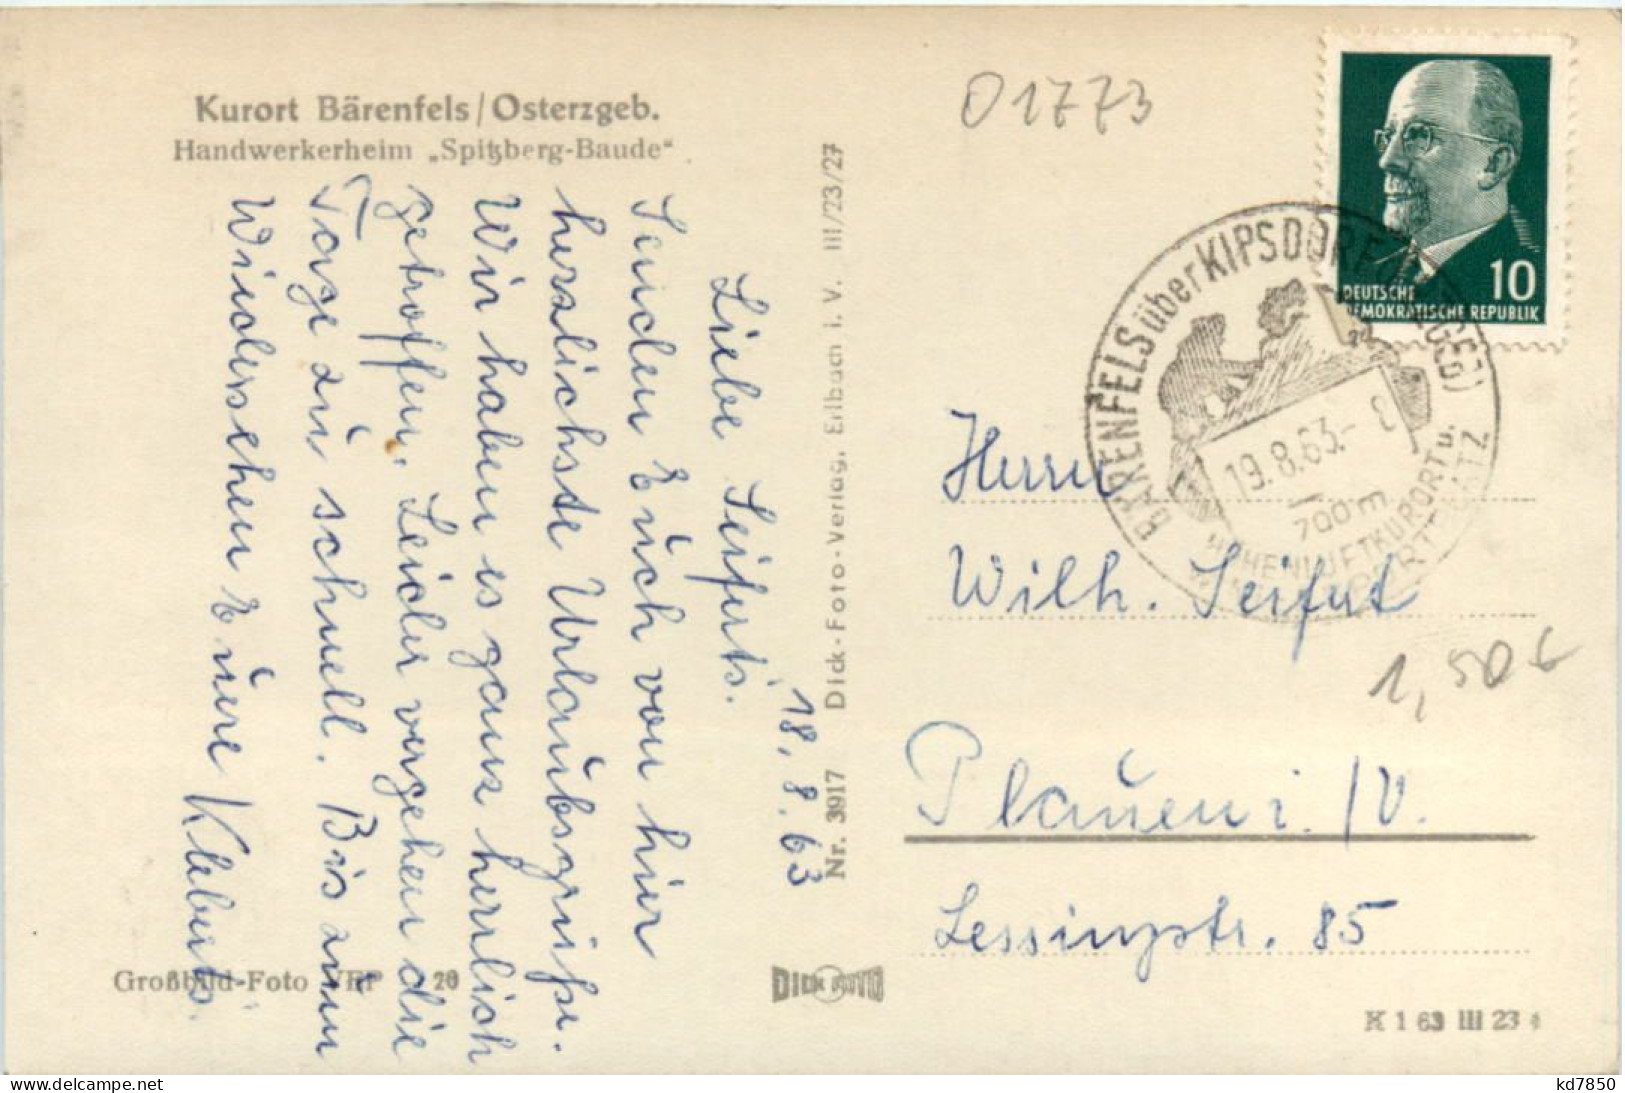 Kurort Bärenfels/Osterzgeb.
Handwerkerheim „Spitzberg-Baude"
18. 8. 63
Liebe Seiferts.
Senden Euch von hier
herzlichste Urlaubsgrüße.
Wir haben es ganz herrlich
getroffen. Leider vergehen die
Tage zu schnell. Bis zum
Wiedersehen Eure Kleberts.
Großbild-Foto VEP 20
Nr. 3917 Dick-Foto-Verlag, Erlbach i. V. III/23/27
DICK FOTO
01773
10
DEUTSCHE
DEMOKRATISCHE REPUBLIK
BÄRENFELS über KIPSDORF
19.8.63.- 8
700m
HÖHENLUFTKURORT u.
Herrn
Wilh. Seifert
1,50 €
Plauen i./V.
Lessingstr. 85
K 1 63 III 23 4
kd7850